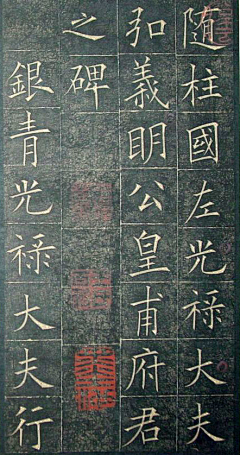 随柱國左光禄大夫
弘義明公皇甫府君
之碑
銀青光禄大夫行